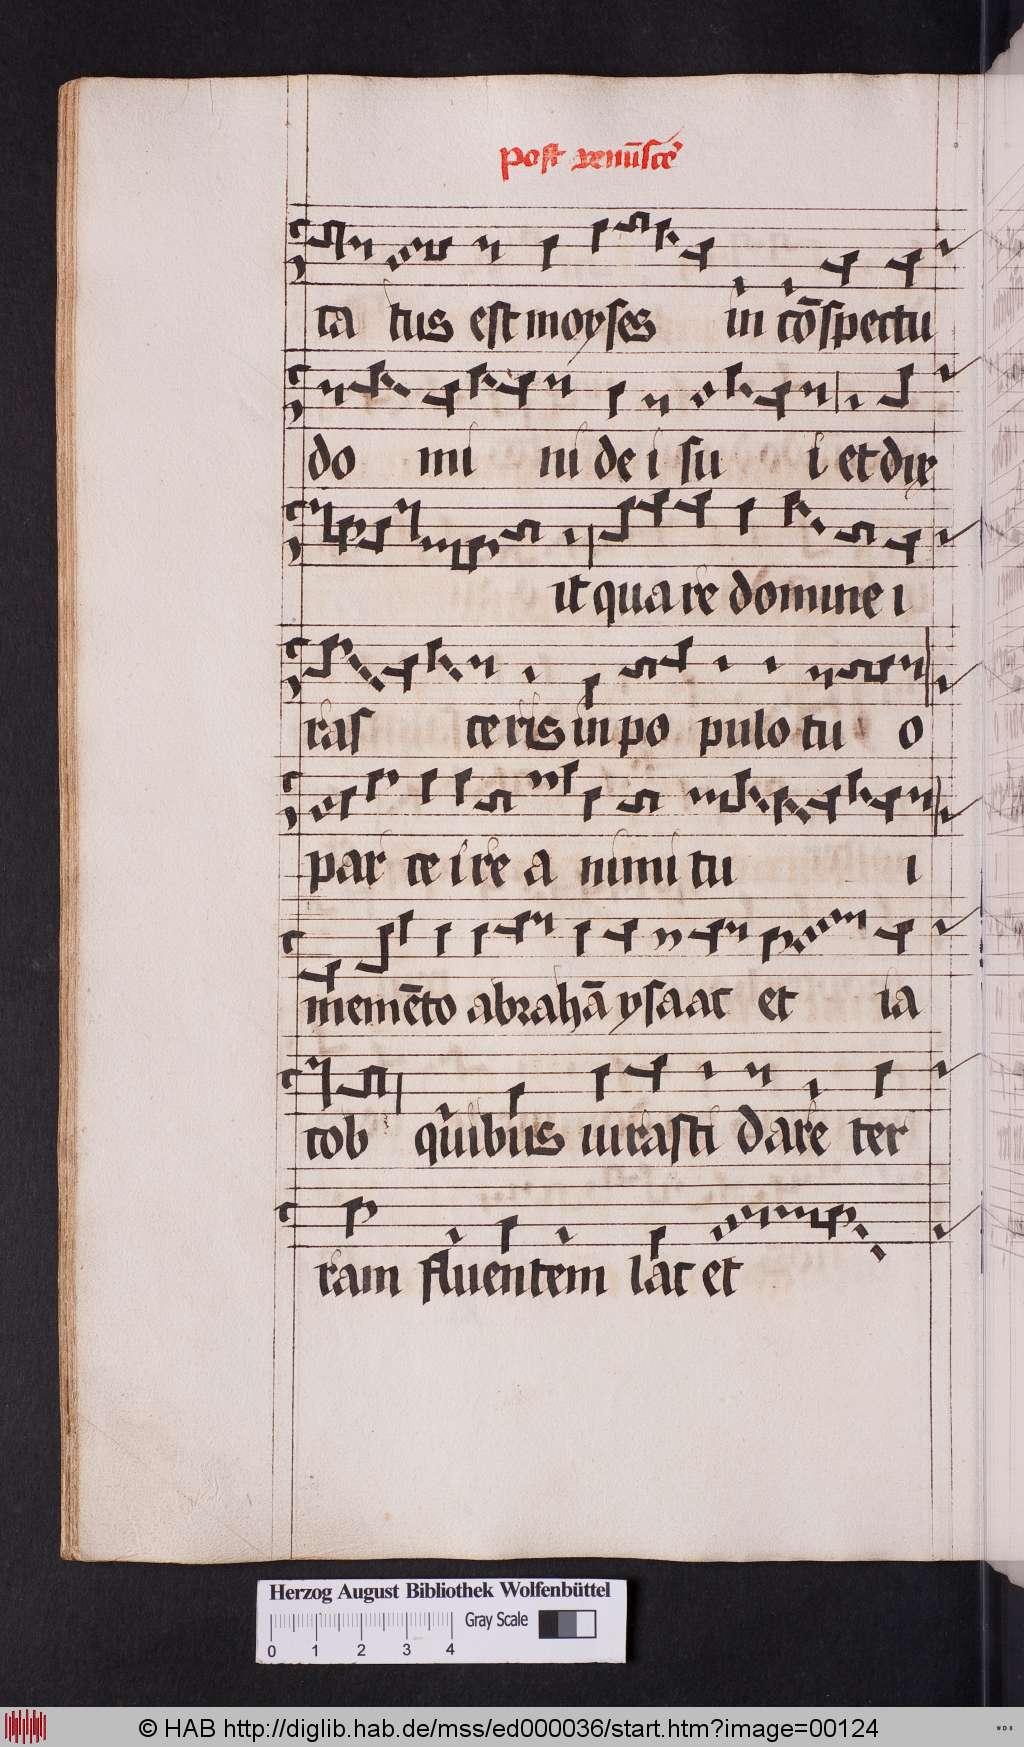 post venūscē
ta tus est moyses in cōspectu
do mi ni de i su i et dix
it qua re domine i
ras ce ris in po pulo tu o
par ce i re a nimi tu i
memēto abrahā ysaac et ia
cob quibus iurasti dare ter
ram fluentem lac et
Herzog August Bibliothek Wolfenbüttel
Gray Scale
0 1 2 3 4
© HAB http://diglib.hab.de/mss/ed000036/start.htm?image=00124